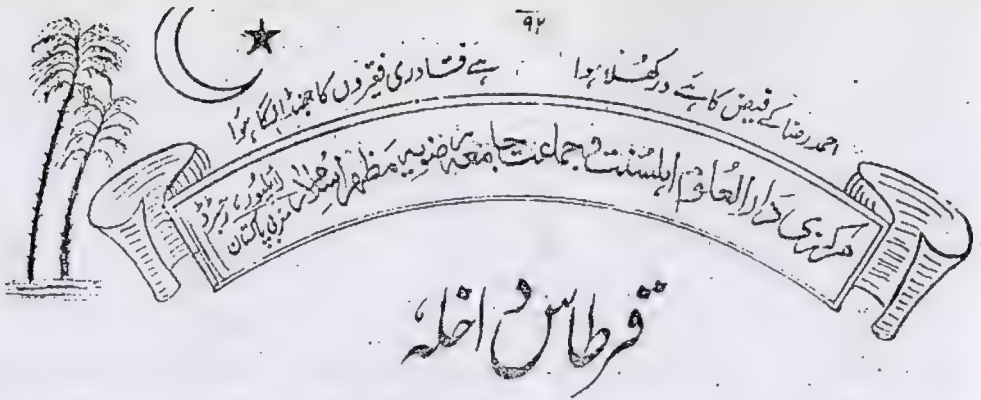 ۹۲
احمد رضا کے فیض کا ہے در کھلا ہوا ہے قادری فقیروں کا جھنڈا لگا ہوا
مرکزی دارالعلوم اہلسنت و جماعت جامعہ رضویہ مظہر اسلام لائلپور، رجسٹرڈ
مغربی پاکستان
قرطاس داخلہ